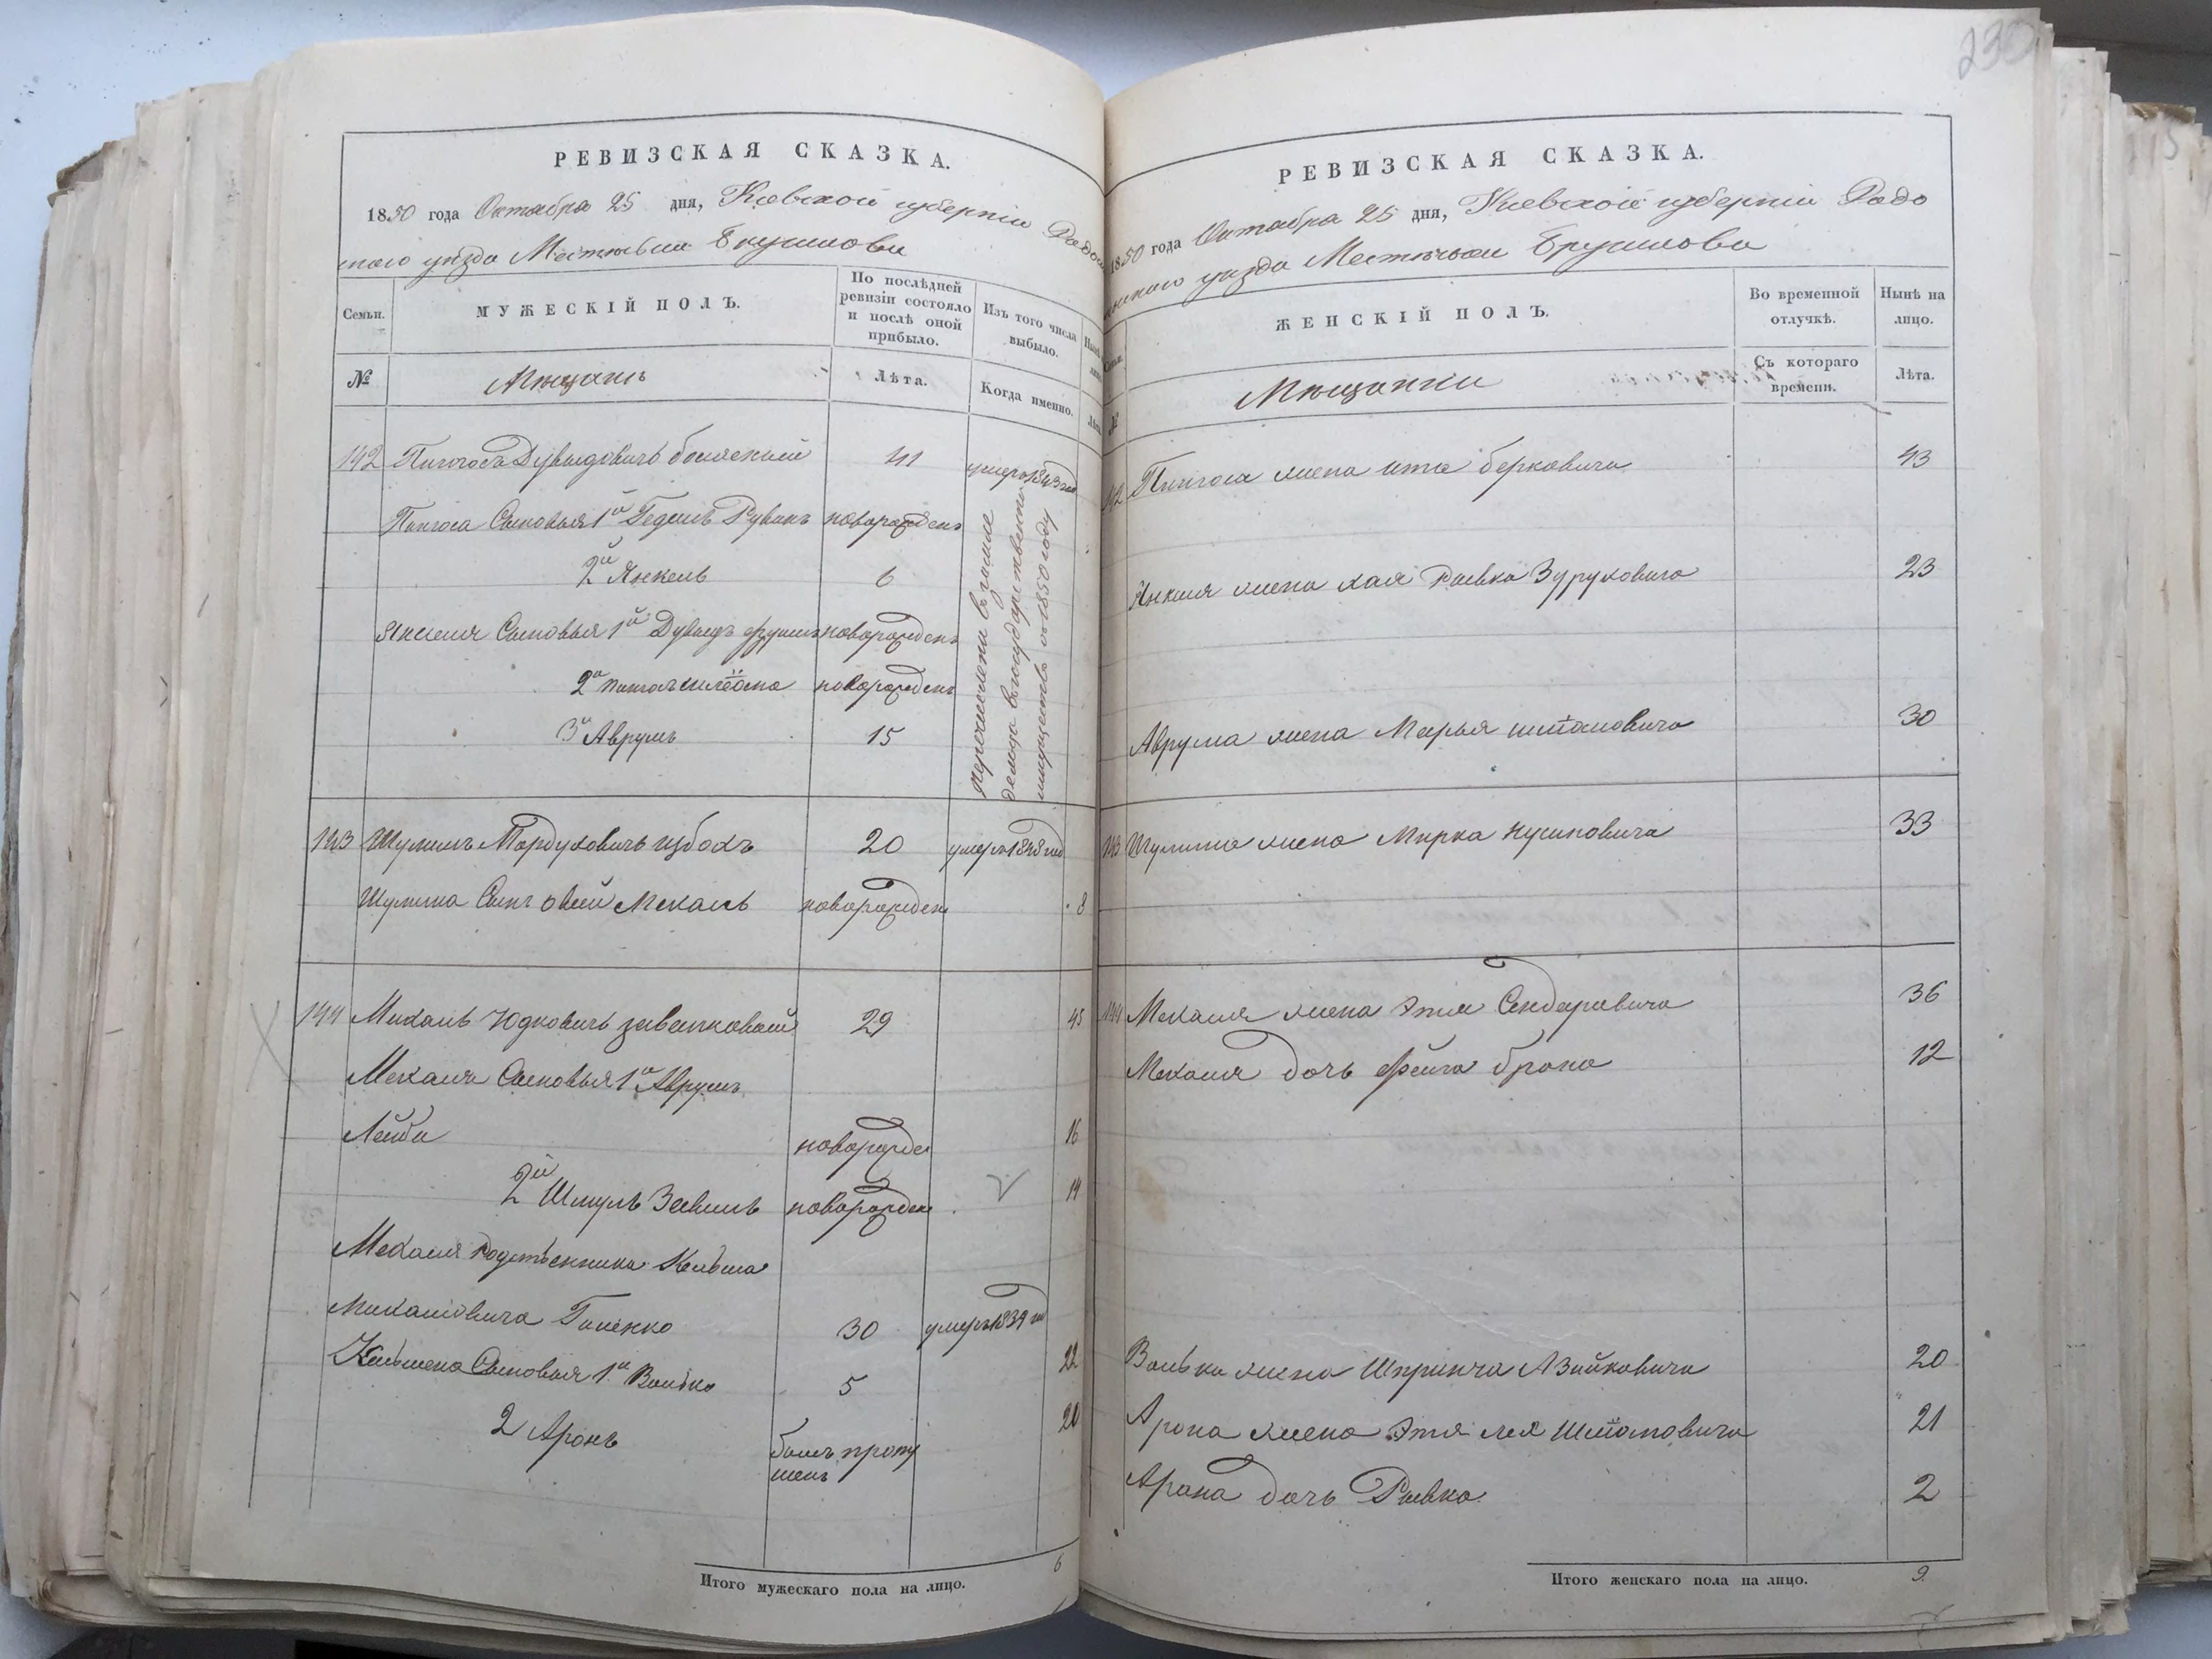 230
РЕВИЗСКАЯ СКАЗКА.
1850 года Октября 25 дня, Киевской губернии Радо
мысльского уезда Местечка Брусилова
Семьи.
МУЖЕСКІЙ ПОЛЪ.
По послѣдней ревизіи состояло и послѣ оной прибыло.
Изъ того числа выбыло.
№
Мещане
Лѣта.
Когда именно.
142 Пинхосъ Дувидовичъ 41 умеръ 1843 год
Пинхоса Сыновья 1й Гедаль Рувинъ новорожденъ
2й Янкель 6
Янкеля Сыновья 1й Дувидъ новорожденъ
2й новорожденъ
3й Аврумъ 15
перечислены в
ведомство государственныхъ
имуществъ въ 1850 году
143 Шулимъ Мордуховичъ 20 умеръ 1848 год
Шулима Сынъ Овсей Мехаль новорожден 8
144 Михаль Юдковичъ 29 45
Мехаля Сыновья 1й Аврумъ
Лейба новорожде 16
2й Шмуль Зевель новорожден 14
Мехаля родственника Кельмана
Михайловича 30 умеръ 1839 год
Кельмена Сыновья 1й Волько 5 22
2 Аронъ былъ пропу
щенъ 20
Итого мужескаго пола на лицо. 6
РЕВИЗСКАЯ СКАЗКА.
1850 года Октября 25 дня, Киевской губернии Радо
мысльского уезда Местечка Брусилова
ЖЕНСКІЙ ПОЛЪ.
Во временной отлучкѣ.
Нынѣ на лицо.
№
Мещанки
Съ котораго времени.
Лѣта.
142 Пинхоса жена Ита Берковича 43
Янкеля жена Хая Рывка 23
Аврума жена Марья 30
143 Шулима жена Мирка Нусиновича 33
144 Мехаля жена Этля Сендеровича 36
Мехаля дочь Фейга Брана 12
Волька жена Шпринча Айзиковича 20
Арона жена Этя Лея 21
Арона дочь Рывка 2
Итого женскаго пола на лицо. 9